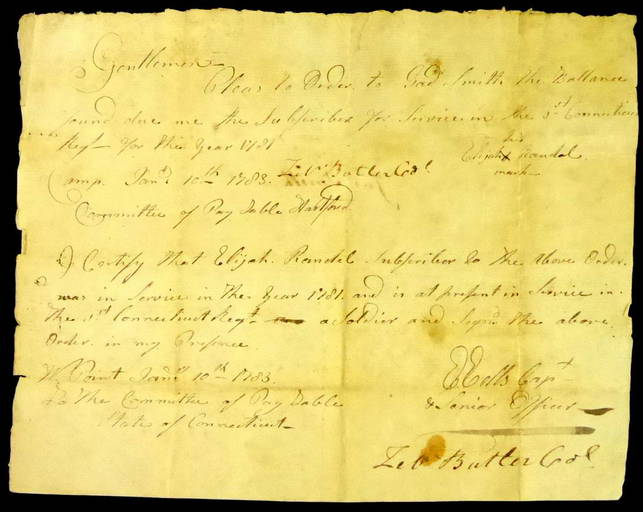 Gentlemen
Pleas to Order to Gad Smith the Ballance
found due me the Subscriber for Service in the 1st Connecticut
Regt for the Year 1781
his
Elijah X Randal
mark
Camp Jany 10th 1783. Zebn Butler Col.
Committee of Pay Table Hartford
I Certify that Elijah Randel Subscriber to the above Order
was in Service in the Year 1781. and is at present in Service in
the 1st Connecticut Regt a Soldier and Signd the above
Order in my Presence
W Point Jany 10th 1783.
To the Committee of Pay Table
State of Connecticut
E Eells Capt
& Senior Officer
Zebn Butler Col.